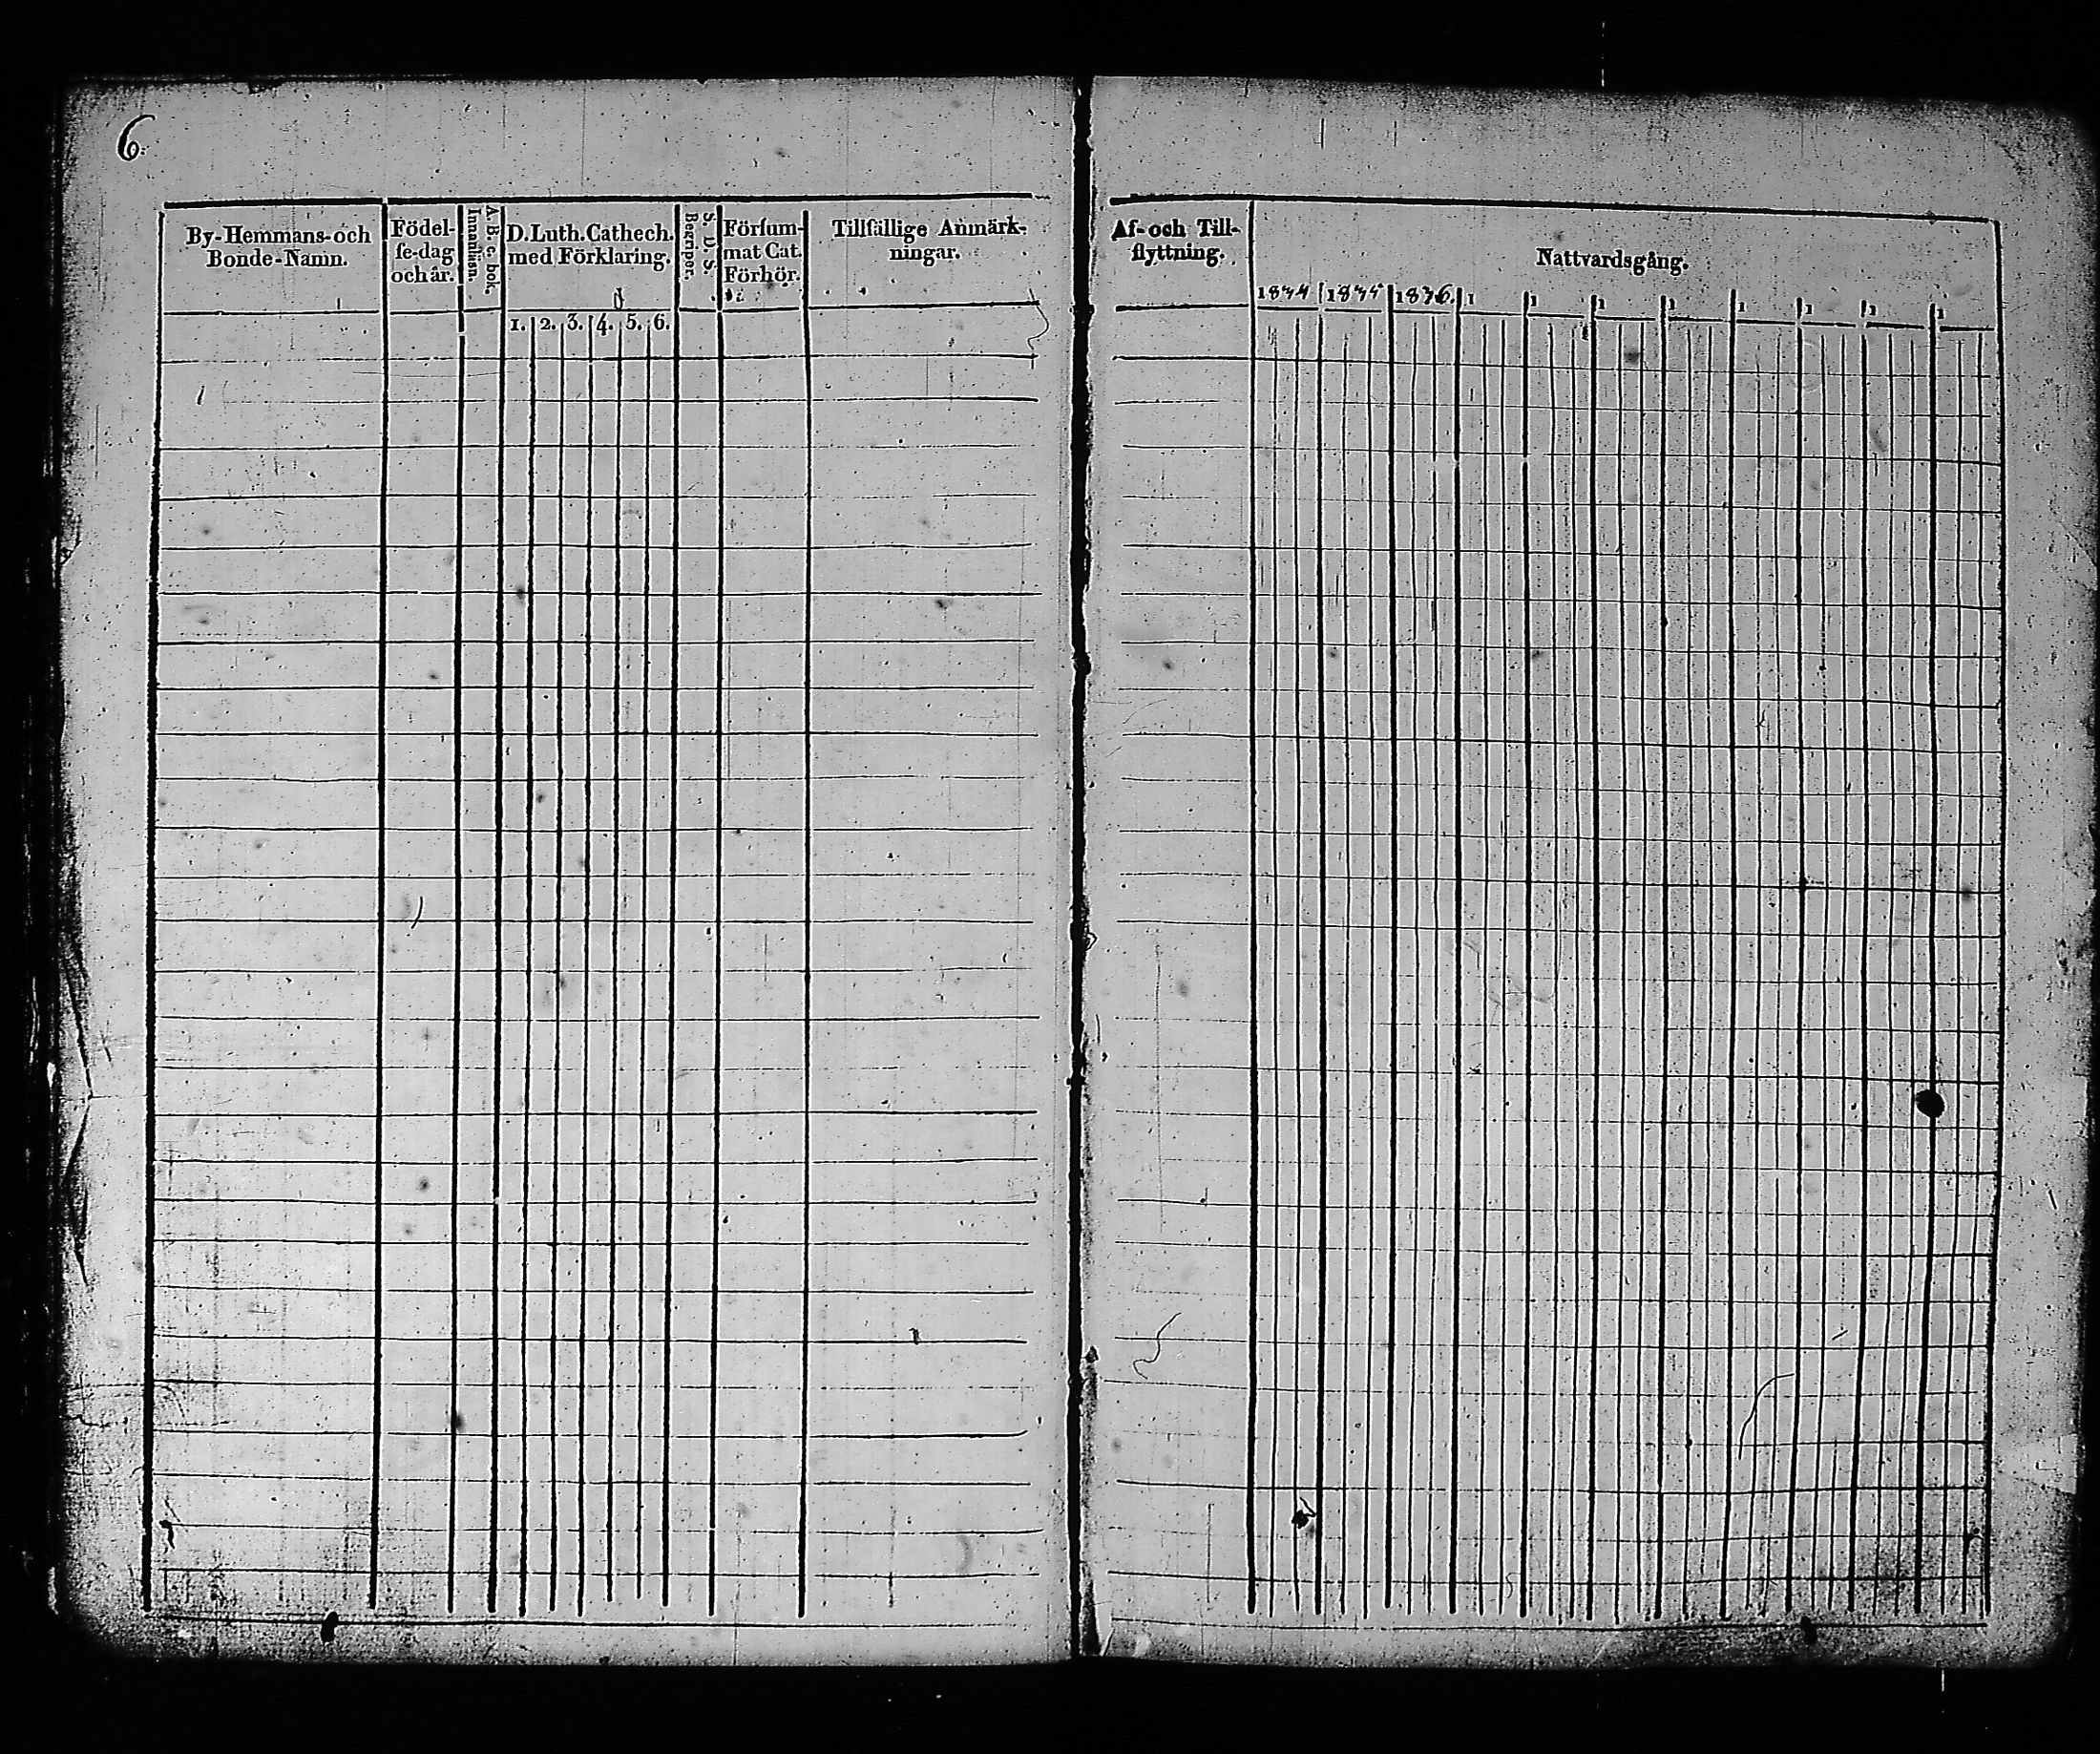 6.
By-Hemmans-och
Bonde-Namn.
Födel-
se-dag
och år.
A. B. c. bok.
Innanläsn.
D. Luth. Cathech.
med Förklaring.
1. 2. 3. 4. 5. 6.
S. D. S.
Begriper.
Försum-
mat Cat.
Förhör.
Tillfällige Anmärk-
ningar.
Af- och Till-
flyttning.
Nattvardsgång.
1834 1835 1836. 1 1 1 1 1 1 1 1